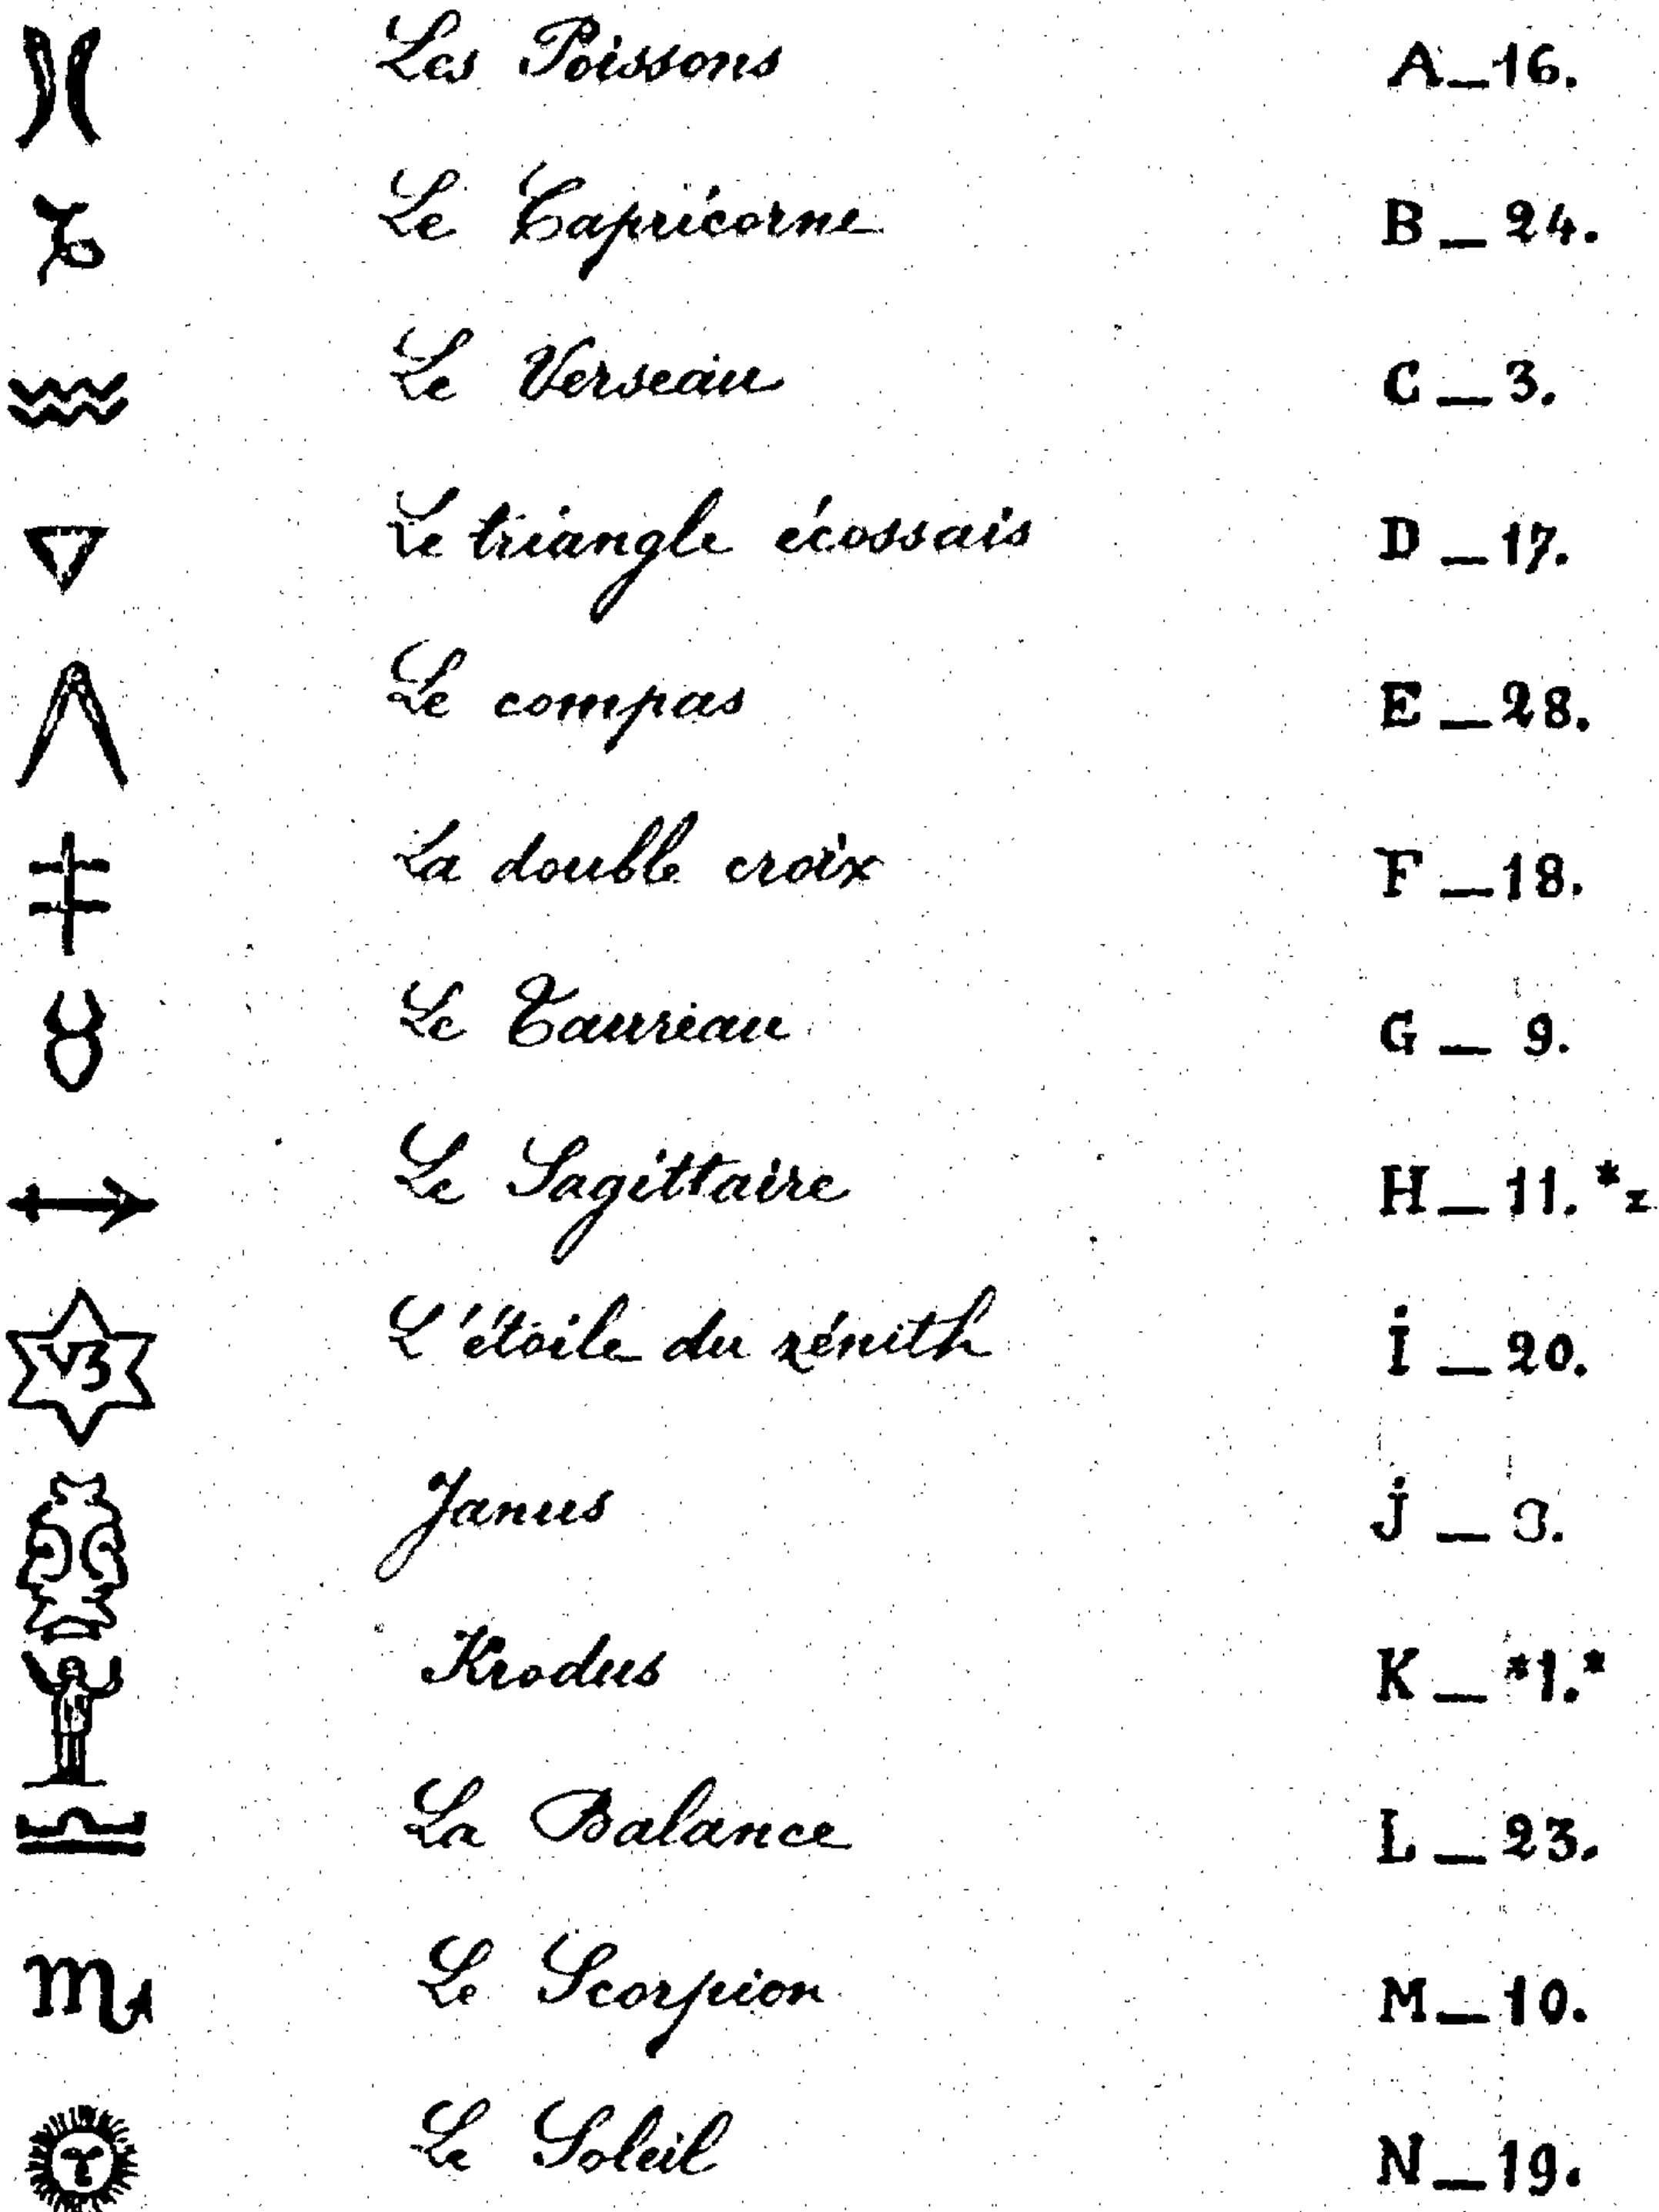 Les Poissons A_16.
Le Capricorne B_24.
Le Verseau C_3.
Le triangle écossais D_17.
Le compas E_28.
La double croix F_18.
Le Taureau G_9.
Le Sagittaire H_11.*z
V3 L'étoile du zénith I_20.
Janus J_
Krodus K_*1.*
La Balance L_23.
Le Scorpion M_10.
Le Soleil N_19.